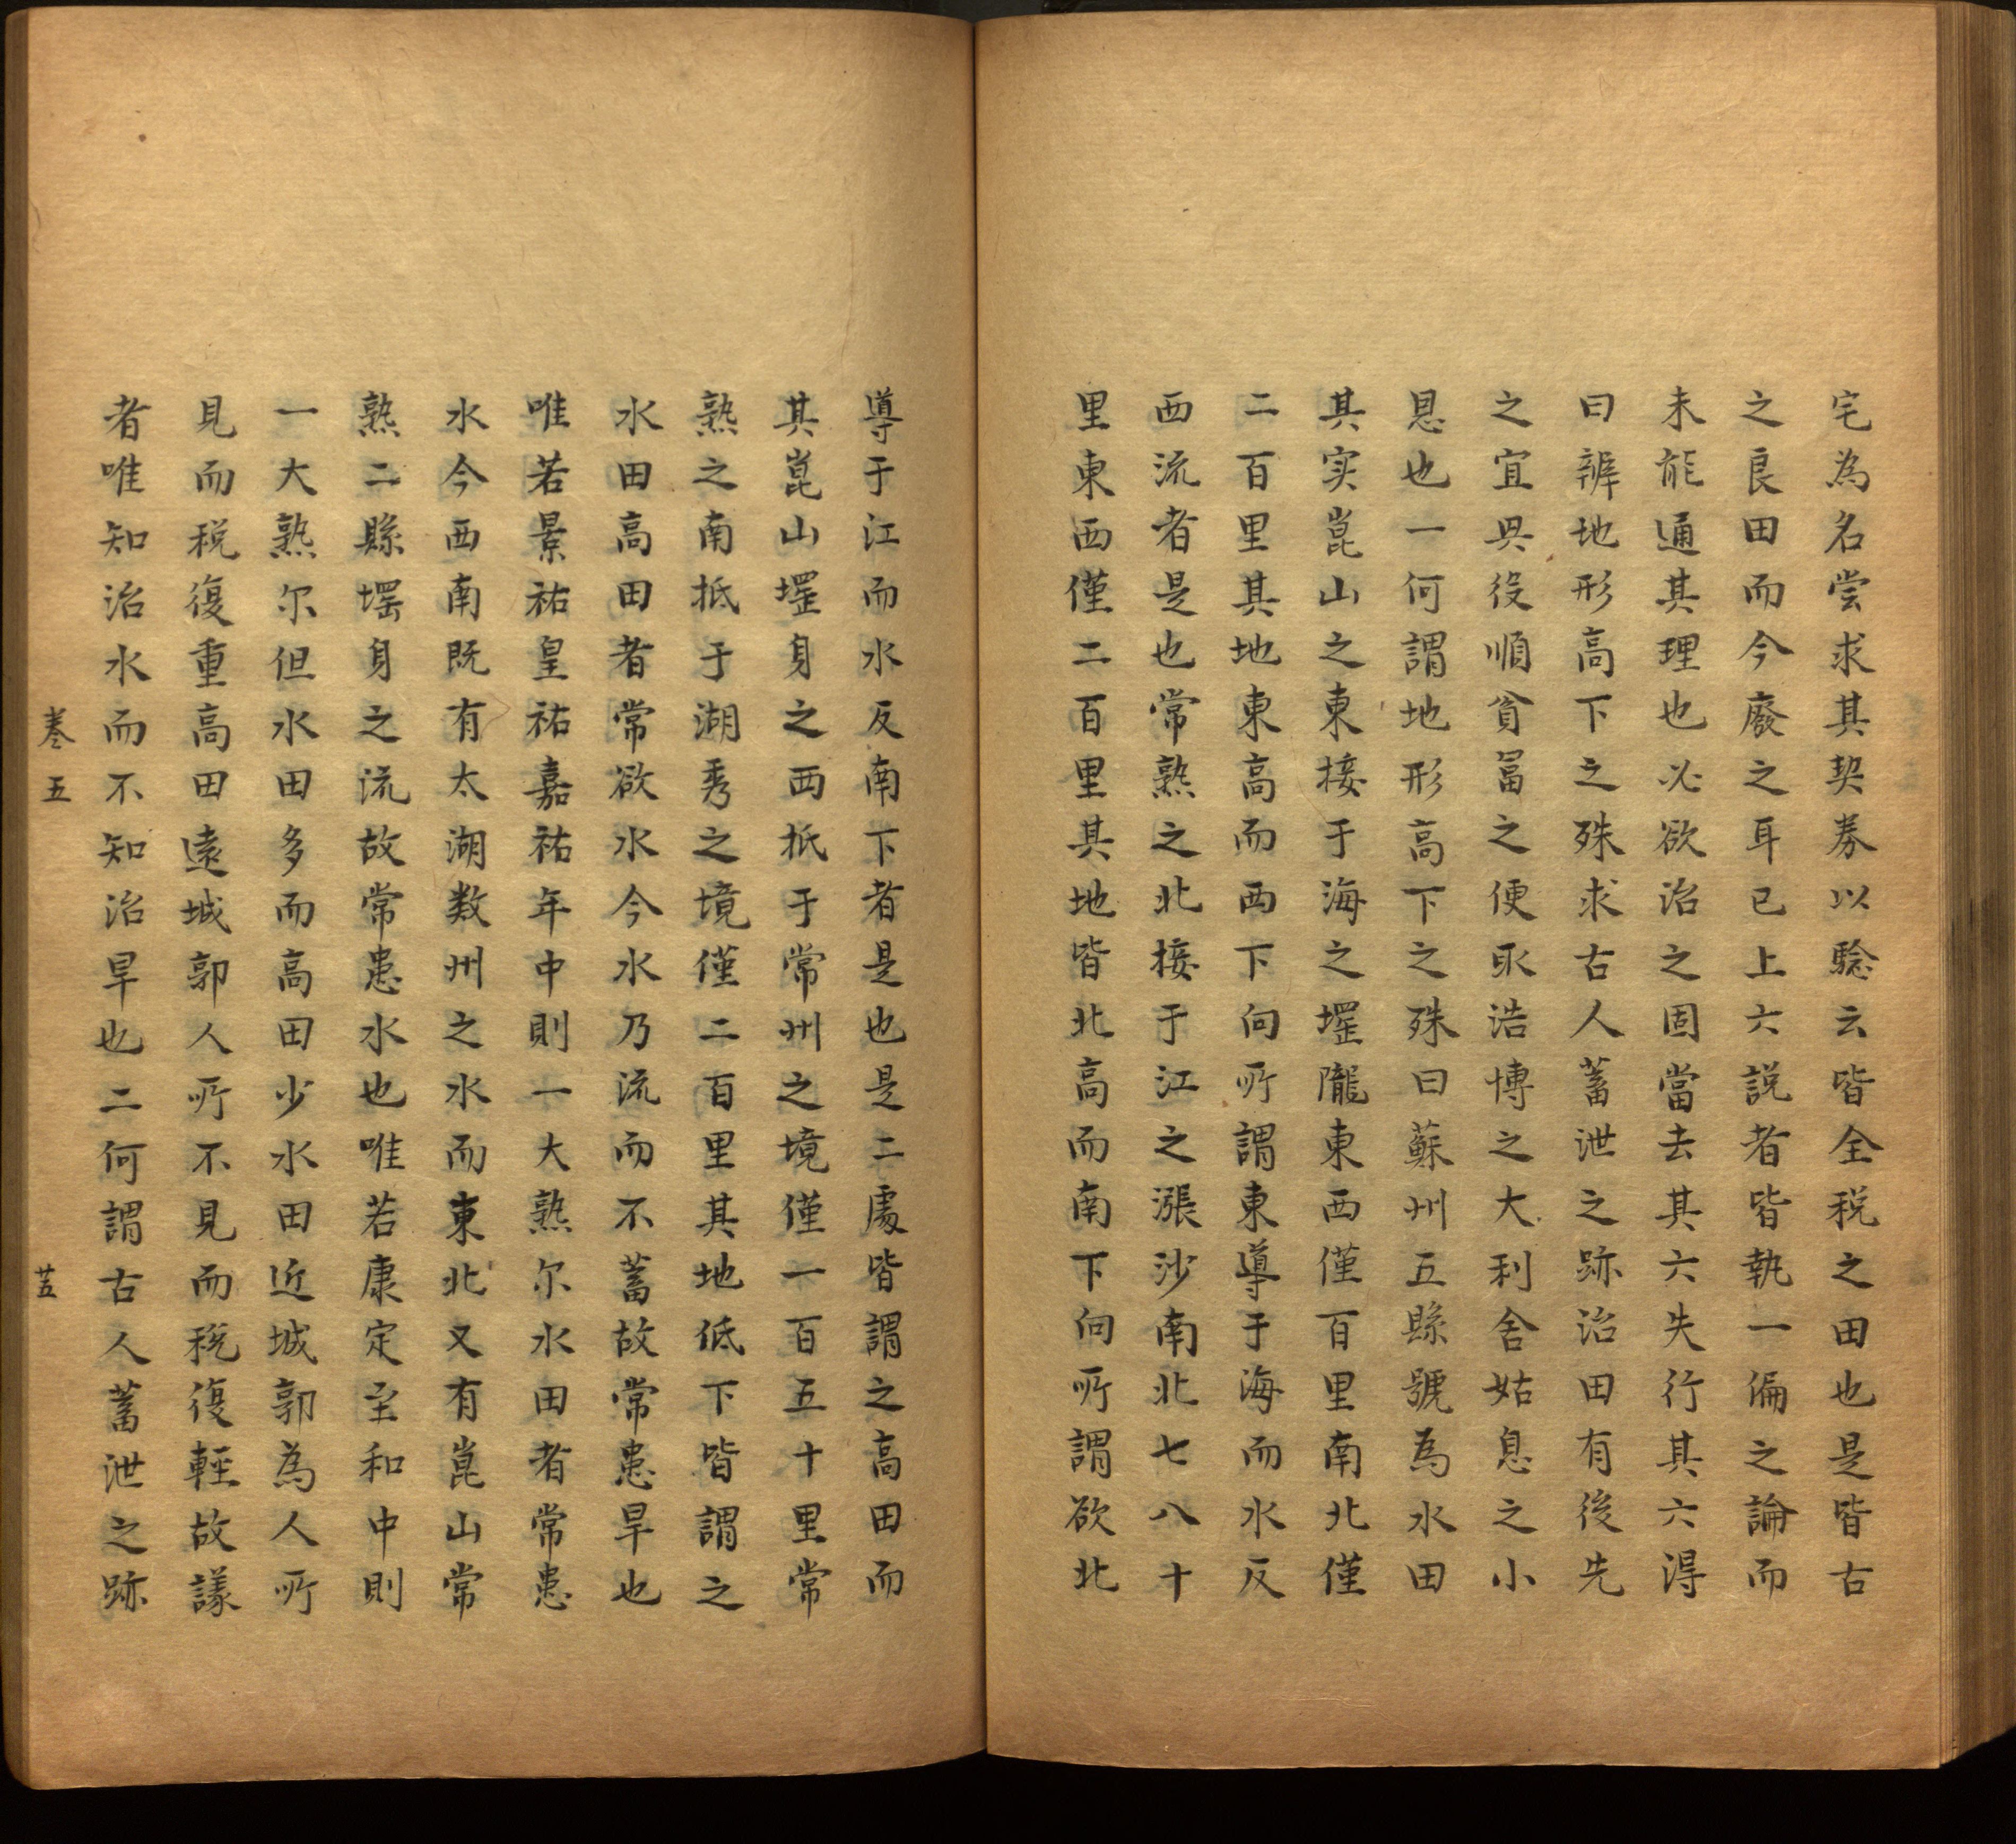 宅為名嘗求其契券以驗云皆全税之田也是皆古
之良田而今廢之耳已上六説者皆執一偏之論而
未能通其理也必欲治之固當去其六失行其六得
曰辨地形高下之殊求古人蓄泄之跡治田有後先
之宜興役順貧富之便取浩博之大利舍姑息之小
恩也一何謂地形高下之殊曰蘇州五縣號為水田
其实崑山之東接于海之堽隴東西僅百里南北僅
二百里其地東高而西下向所謂東導于海而水反
西流者是也常熟之北接于江之漲沙南北七八十
里東西僅二百里其地皆北高而南下向所謂欲北
導于江而水反南下者是也是二處皆謂之高田而
其崑山堽身之西抵于常州之境僅一百五十里常
熟之南抵于湖秀之境僅二百里其地低下皆謂之
水田高田者常欲水今水乃流而不蓄故常患旱也
唯若景祐皇祐嘉祐年中則一大熟尔水田者常患
水今西南既有太湖数州之水而東北又有崑山常
熟二縣堽身之流故常患水也唯若康定至和中則
一大熟尔但水田多而高田少水田近城郭為人所
見而税復重高田遠城郭人所不見而税復輕故議
者唯知治水而不知治旱也二何謂古人蓄泄之跡
卷五